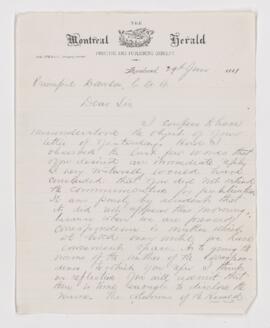 THE
Montreal Herald
PRINTING AND PUBLISHING COMPANY
Montreal, 29th June 188
Principal Dawson, C.M.G.
Dear Sir
I confess I have
misunderstood the object of your
letter of yesterday. Had I
observed the words
you desired an immediate reply
I very naturally would have
concluded that you did not intend
the communication for publication
It was purely by accident that
it did not appear this morning
we are pressed
correspondence in matter which
at
convenient space. As to giving the
name of the writer of the
to which you refer I think
on reflection you will admit that
there is time enough to disclose the
name. The columns of the Herald